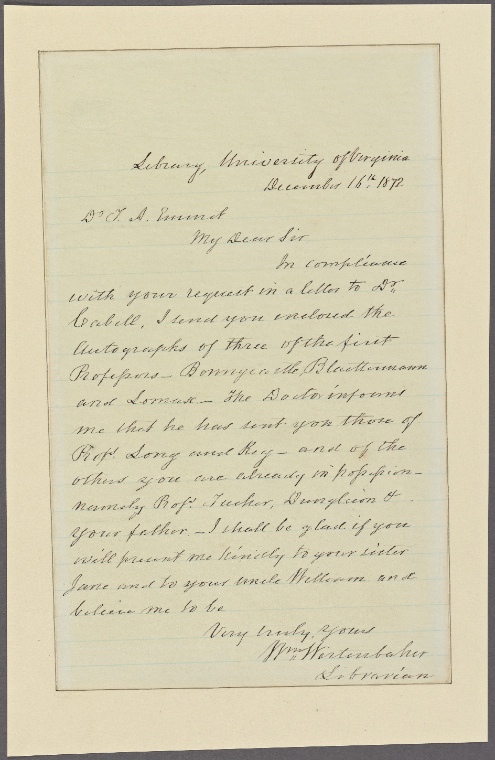 Library, University of Virginia
December 16th. 1872
Dr T. A. Emmet
My Dear Sir
In compliance
with your request in a letter to Dr.
Cabell, I send you enclosed the
Autographs of three of the first
Professors – Bonnycastle, Blaettermann
and Lomax – The Doctor informs
me that he has sent you those of
Profs. Long and Key – and of the
others you are already in possession –
namely Profs. Tucker, Dunglison &
your father. – I shall be glad if you
will present me kindly to your sister
Jane and to your uncle William and
believe me to be
Very truly, yours
Wm. Wertenbaker
Librarian